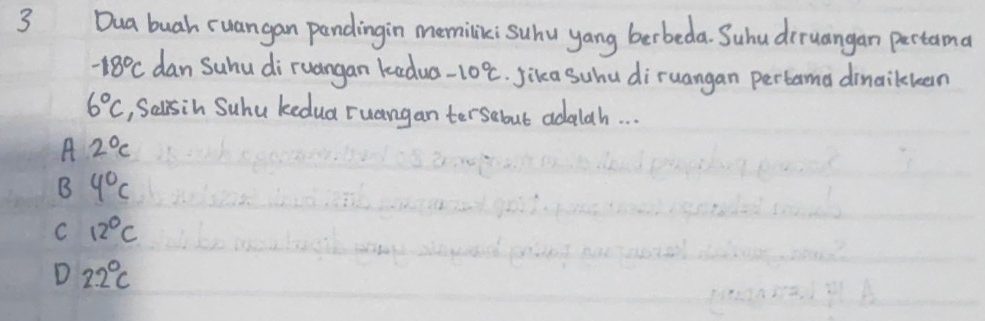 3 Dua buah ruangan pendingin memiliki suhu yang berbeda. Suhu diruangan pertama
-18°C dan suhu di ruangan kedua -10°C. Jika suhu di ruangan pertama dinaikkan
6°C, Selisih Suhu kedua ruangan tersebut adalah ...
A 2°C
B 4°C
C 12°C
D 22°C